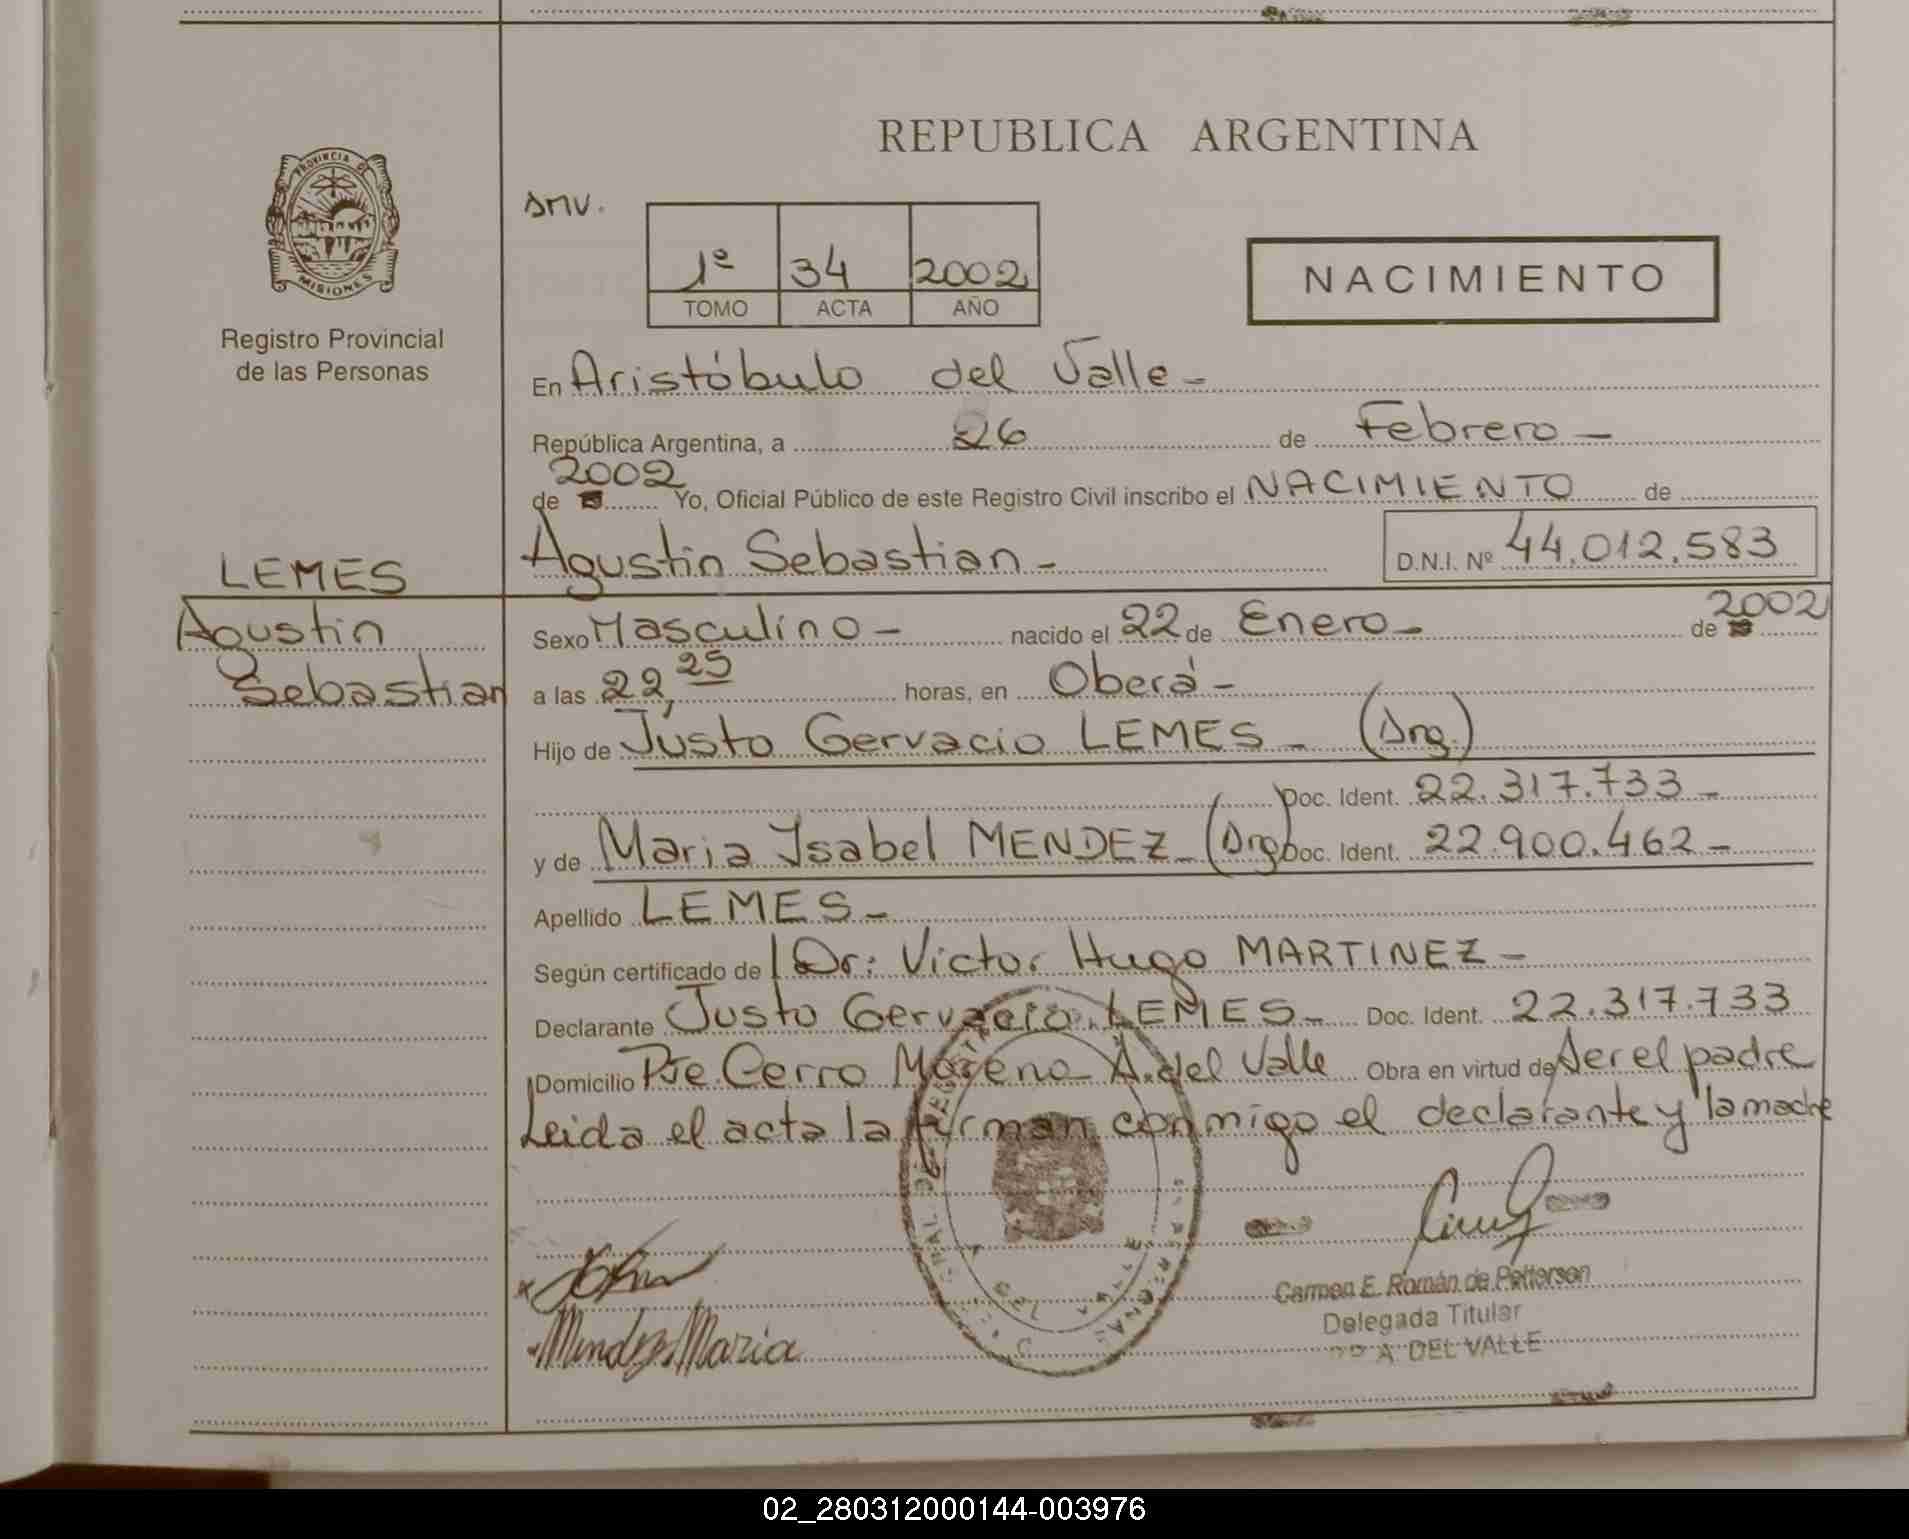 REPUBLICA ARGENTINA
PROVINCIA DE
MISIONES
Registro Provincial
de las Personas
smv.
1º 34 2002
TOMO ACTA AÑO
NACIMIENTO
En Aristóbulo del Valle -
República Argentina, a 26 de Febrero -
2002
de Yo, Oficial Público de este Registro Civil inscribo el NACIMIENTO de
Agustin Sebastian - D.N.I. Nº 44.012.583
LEMES
Agustin
Sebastian
Sexo Masculino - nacido el 22 de Enero - de 2002
a las 22,25 horas, en Oberá -
Hijo de Justo Gervacio LEMES - (Arg.)
Doc. Ident. 22.317.733 -
y de Maria Ysabel MENDEZ - (Arg) Doc. Ident. 22.900.462 -
Apellido LEMES -
Según certificado de Dr: Victor Hugo MARTINEZ -
Declarante Justo Gervacio LEMES - Doc. Ident. 22.317.733
Domicilio Pje. Cerro Moreno A. del Valle Obra en virtud de ser el padre
Leida el acta la firman conmigo el declarante y la madre
Mendez Maria
Carmen E. Román de Petterson
Delegada Titular
A. DEL VALLE
02_280312000144-003976